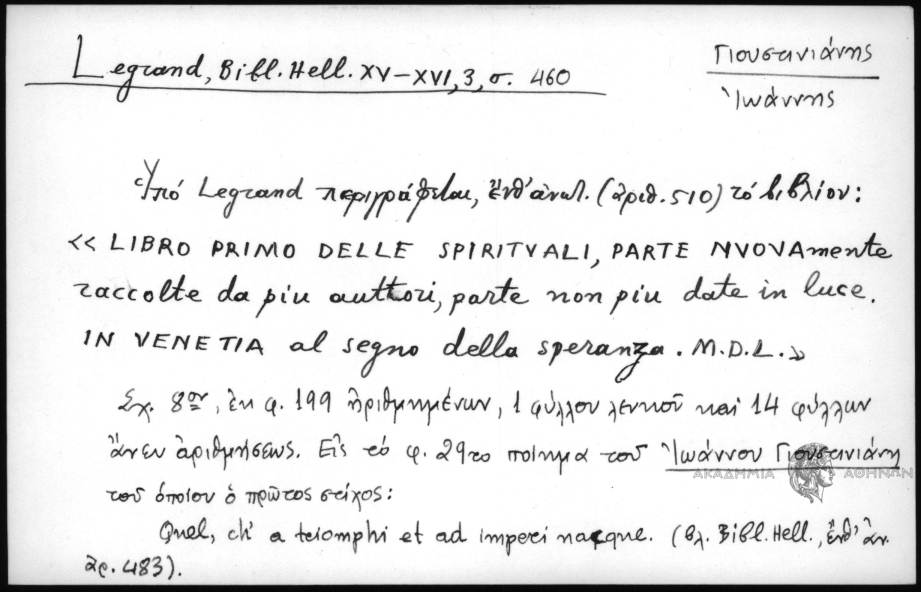 Legrand, Bibl. Hell. XV-XVI, 3, σ. 460
Γιουστινιάνης
Ἰωάννης
Ὑπό Legrand περιγράφεται, ἔνθ' ἀνωτ. (ἀριθ. 510) τό βιβλίον:
<< LIBRO PRIMO DELLE SPIRITVALI, PARTE NVOVAmente
raccolte da piu auttori, parte non piu date in luce.
IN VENETIA al segno della speranza. M.D.L.>>
Σχ. 8ον, ἐκ φ. 199 ἠριθμημένων, 1 φύλλου λευκοῦ καί 14 φύλλων
ἄνευ ἀριθμήσεως. Εἰς τό φ. 29 το ποίημα τοῦ Ἰωάννου Γιουστινιάνη
ΑΚΑΔΗΜΙΑ ΑΘΗΝΩΝ
τοῦ ὁποίου ὁ πρῶτος στίχος:
Quel, ch' a triomphi et ad imperi nacque. (βλ. Bibl. Hell., ἔνθ' ἀν.
ἀρ. 483).